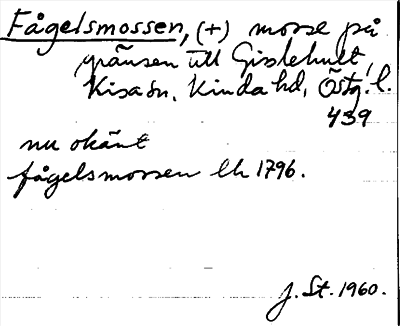 Fågelsmossen, (+) mosse på
gränsen till Gislehult,
Kisa sn, Kinda hd, Östg. l.
439
nu okänt
fågelsmossen lh 1796.
J. St. 1960.